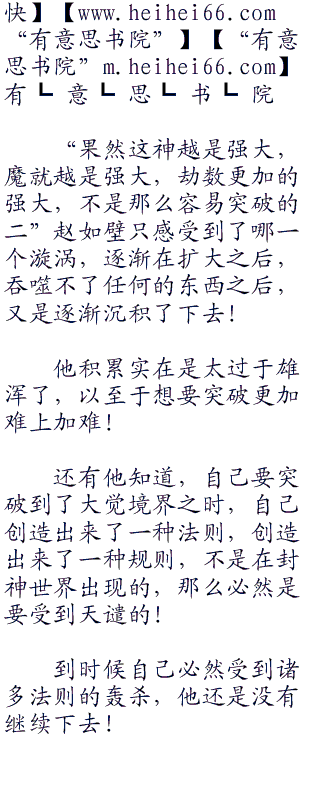 快】【www.heihei66.com
“有意思书院”】【“有意
思书院”m.heihei66.com】
有┗ 意┗ 思┗ 书┗ 院
“果然这神越是强大，
魔就越是强大，劫数更加的
强大，不是那么容易突破的
二”赵如壁只感受到了哪一
个漩涡，逐渐在扩大之后，
吞噬不了任何的东西之后，
又是逐渐沉积了下去！
他积累实在是太过于雄
浑了，以至于想要突破更加
难上加难！
还有他知道，自己要突
破到了大觉境界之时，自己
创造出来了一种法则，创造
出来了一种规则，不是在封
神世界出现的，那么必然是
要受到天谴的！
到时候自己必然受到诸
多法则的轰杀，他还是没有
继续下去！